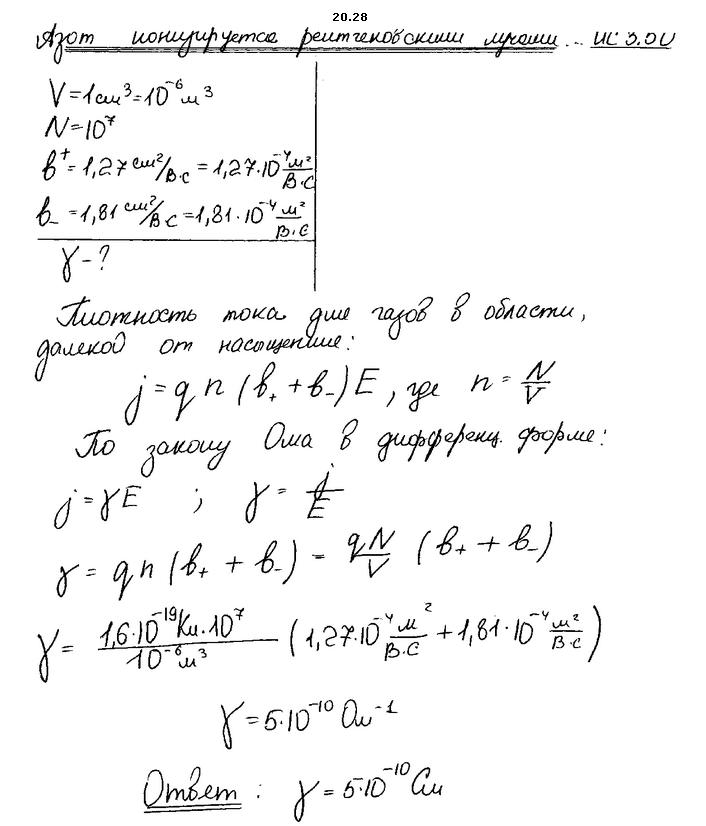 20.28
Азот ионизируется рентгеновскими лучами...
V=1см³=10⁻⁶м³
N=10⁷
b⁺=1,27см²/В·с=1,27·10⁻⁴м²/В·с
b₋=1,81см²/В·с=1,81·10⁻⁴м²/В·с
γ-?
Плотность тока для газов в области,
далекой от насыщения:
j=qn(b₊+b₋)E, где n=N/V
По закону Ома в дифференц. форме:
j=γE ; γ=j/E
γ=qn(b₊+b₋)=qN/V (b₊+b₋)
γ=1,6·10⁻¹⁹Кл·10⁷/10⁻⁶м³ (1,27·10⁻⁴м²/В·с+1,81·10⁻⁴м²/В·с)
γ=5·10⁻¹⁰Ом⁻¹
Ответ: γ=5·10⁻¹⁰См